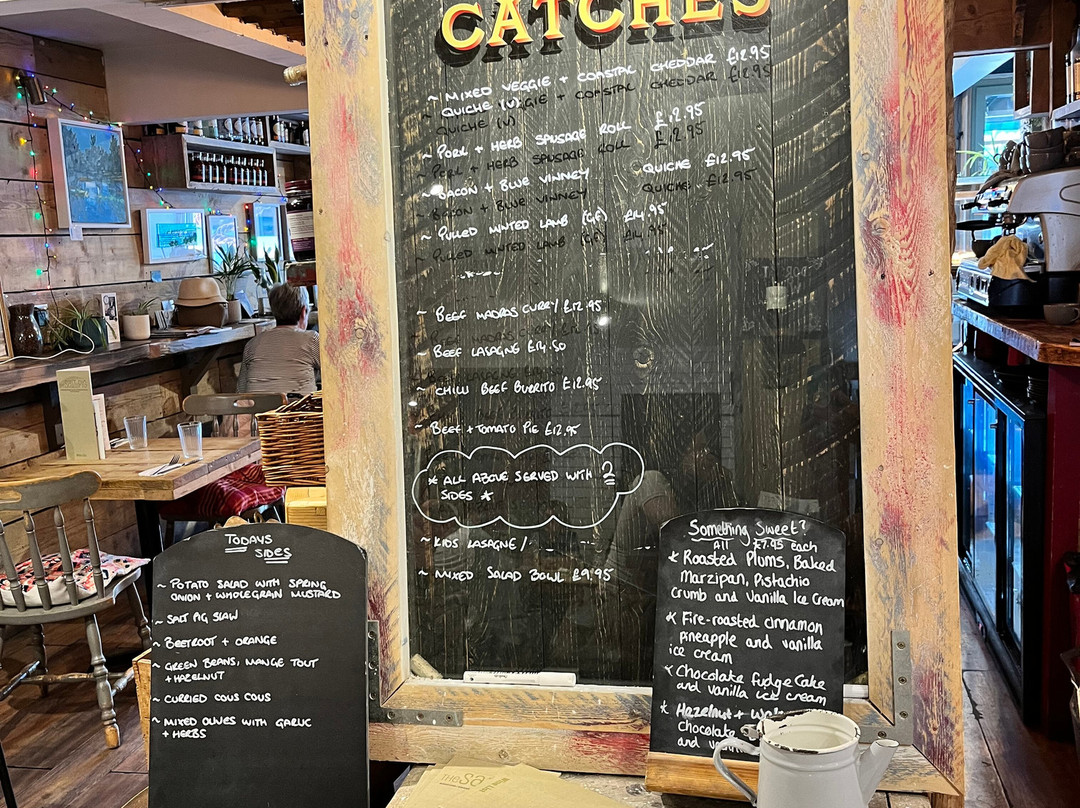 CATCHES
~ MIXED VEGGIE + COASTAL CHEDDAR £12.95
QUICHE (V)
~ PORK + HERB SAUSAGE ROLL £12.95
~ BACON + BLUE VINNEY QUICHE £12.95
~ PULLED MINTED LAMB (GF) £14.95
~ BEEF MADRAS CURRY £12.95
~ BEEF LASAGNE £14.50
~ CHILLI BEEF BURRITO £12.95
~ BEEF + TOMATO PIE £12.95
* ALL ABOVE SERVED WITH 2
SIDES *
~ KIDS LASAGNE /
~ MIXED SALAD BOWL £9.95
TODAYS
SIDES
~ POTATO SALAD WITH SPRING
ONION + WHOLEGRAIN MUSTARD
~ SALT PIG SLAW
~ BEETROOT + ORANGE
~ GREEN BEANS, MANGE TOUT
+ HAZELNUT
~ CURRIED COUS COUS
~ MIXED OLIVES WITH GARLIC
+ HERBS
Something Sweet?
All £7.95 each
* Roasted Plums, Baked
Marzipan, Pistachio
Crumb and Vanilla Ice Cream
* Fire-roasted cinnamon
pineapple and vanilla
ice cream
* Chocolate fudge Cake
and vanilla ice cream
* Hazelnut +
Chocolate
and